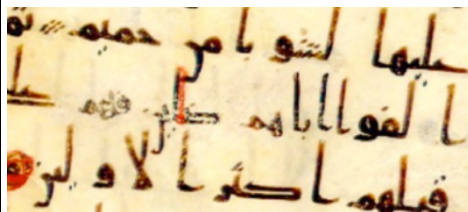 عليها لشوبا من حميم ثم
ا لفوا اباهم ضالين فهم
قبلهم اكثر الاولين